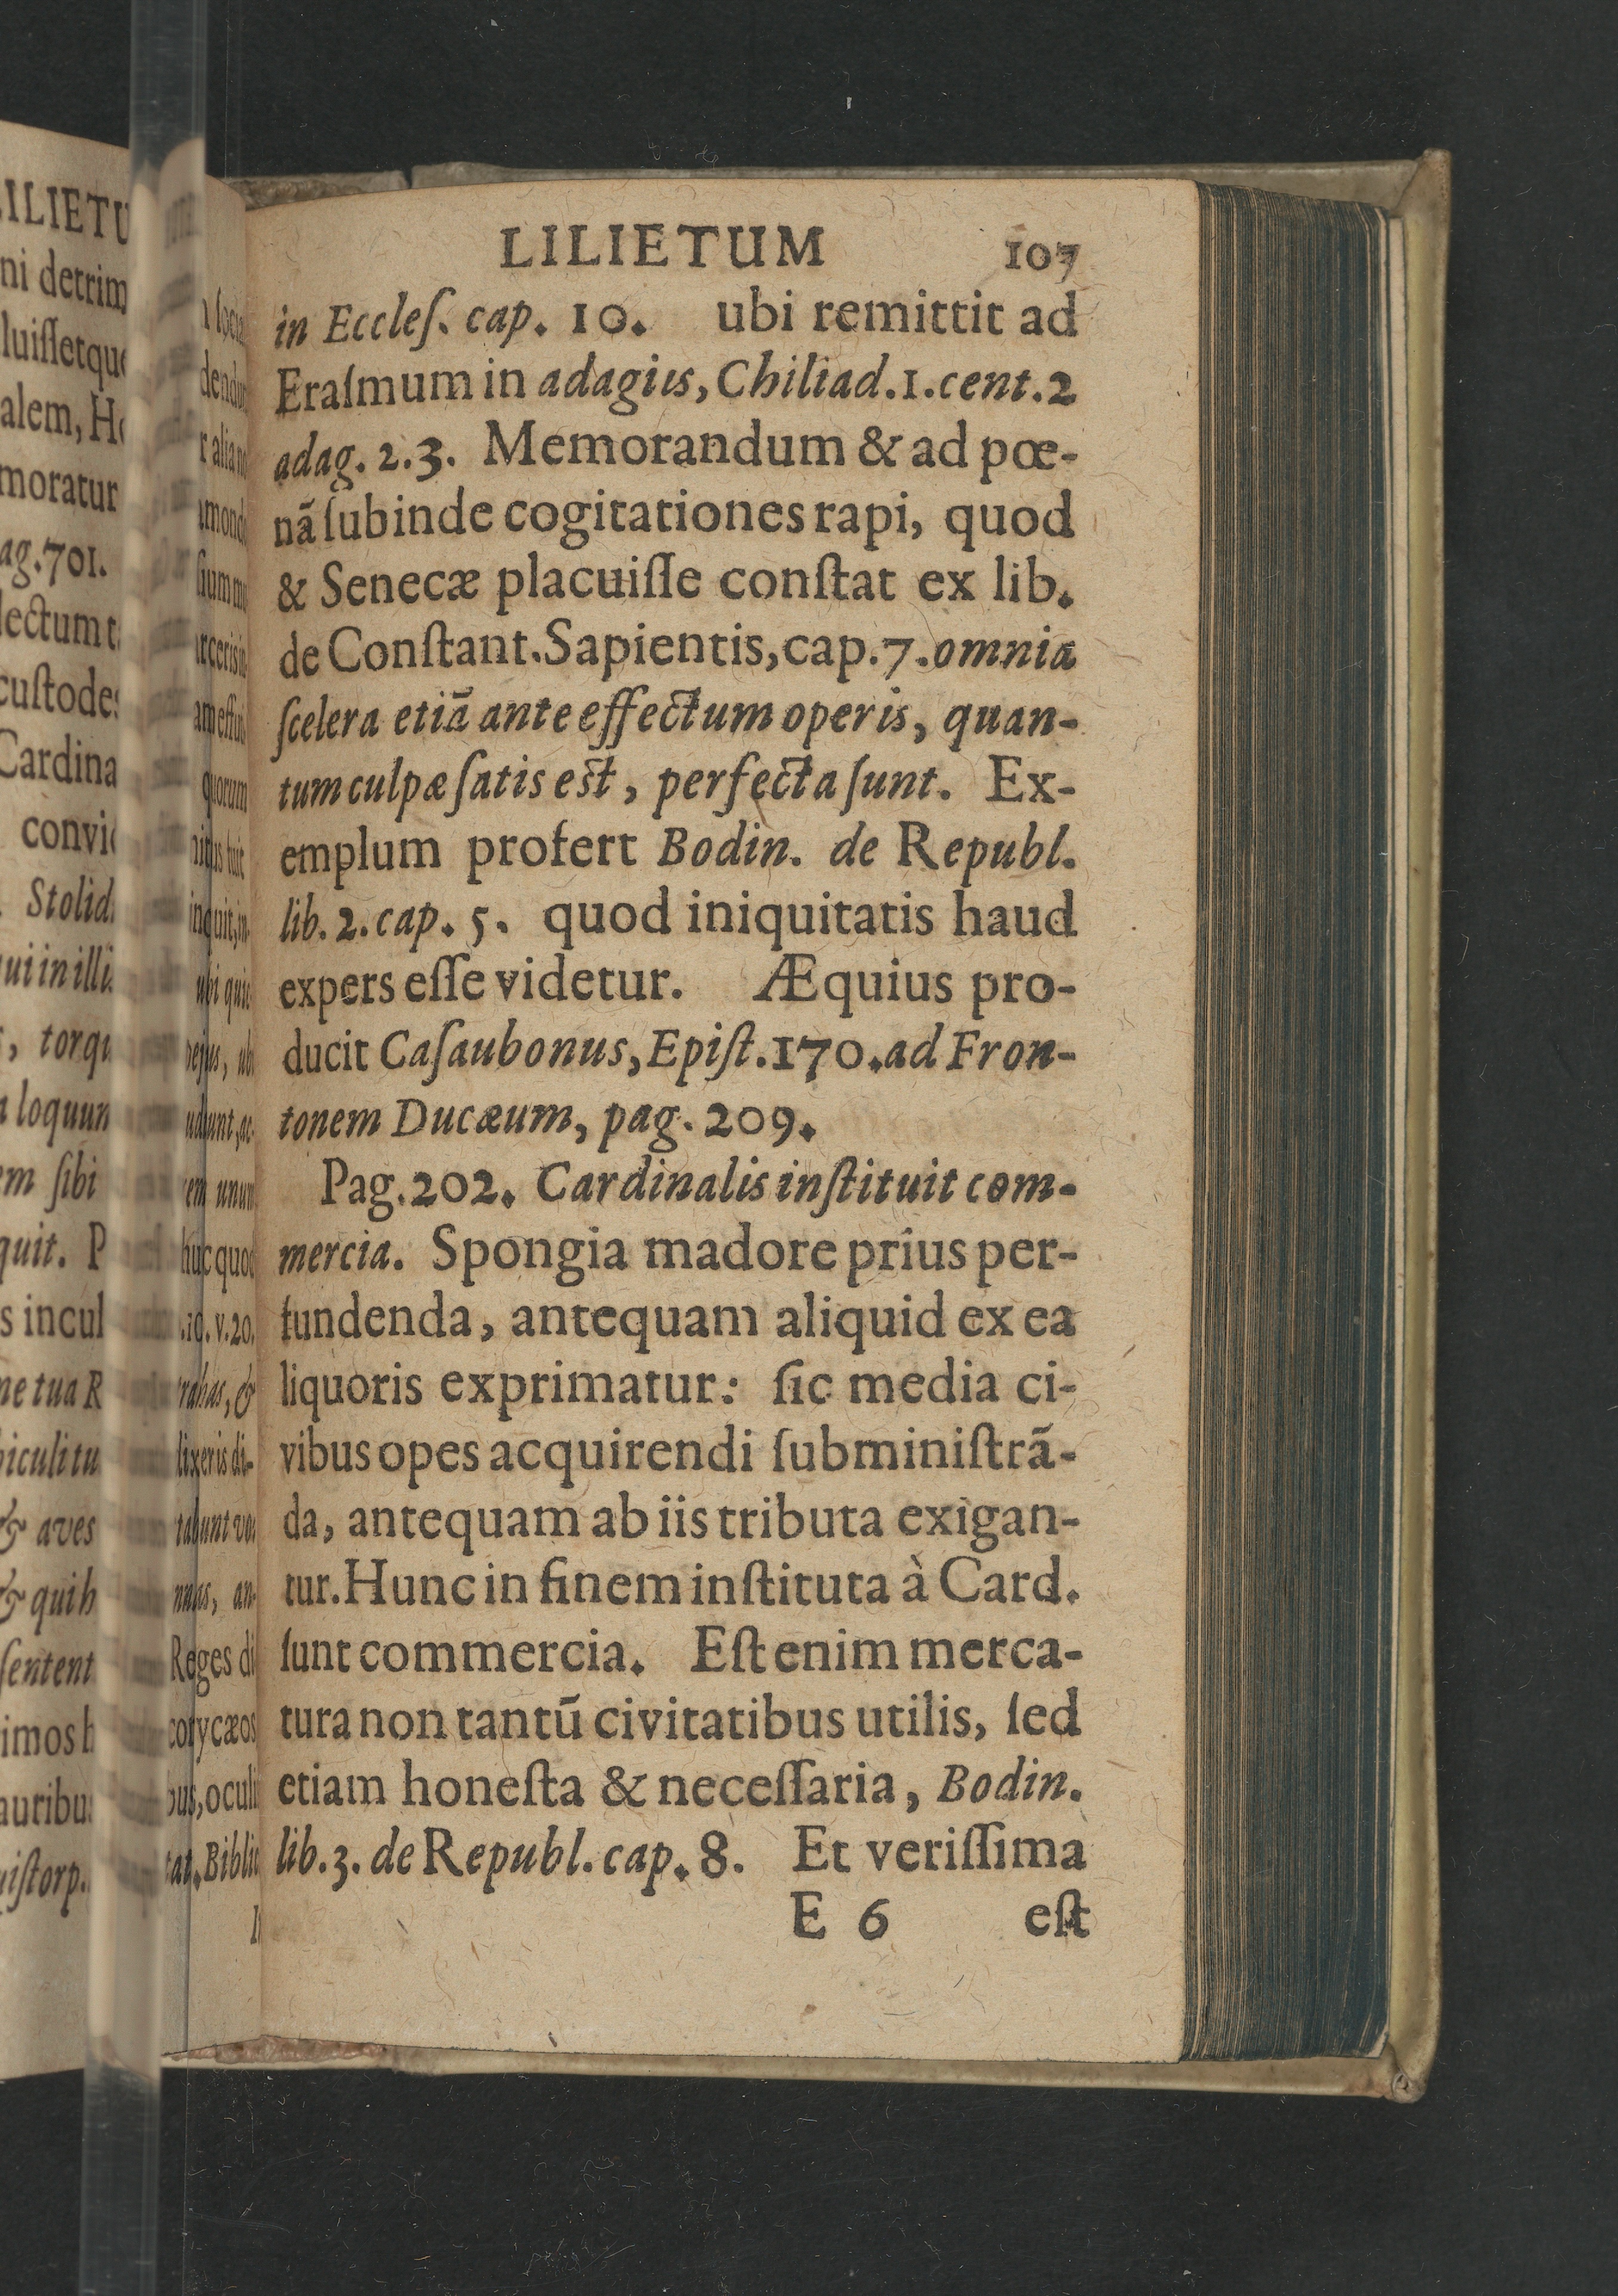 LILIETUM 107
in Eccleſ. cap. 10. ubi remittit ad
Eraſmum in adagiis, Chiliad. 1. cent. 2
adag. 2. 3. Memorandum & ad pœ-
nã ſubinde cogitationes rapi, quod
& Senecæ placuiſſe conſtat ex lib.
de Conſtant. Sapientis, cap. 7. omnia
ſcelera etiã ante effectum operis, quan-
tum culpæ ſatis eſt, perfecta ſunt. Ex-
emplum profert Bodin. de Republ.
lib. 2. cap. 5. quod iniquitatis haud
expers eſſe videtur. Æquius pro-
ducit Caſaubonus, Epiſt. 170. ad Fron-
tonem Ducæum, pag. 209.
Pag. 202. Cardinalis inſtituit com-
mercia. Spongia madore prius per-
fundenda, antequam aliquid ex ea
liquoris exprimatur: ſic media ci-
vibus opes acquirendi ſubminiſtrã-
da, antequam ab iis tributa exigan-
tur. Hunc in finem inſtituta à Card.
ſunt commercia. Eſt enim merca-
tura non tantũ civitatibus utilis, ſed
etiam honeſta & neceſſaria, Bodin.
lib. 3. de Republ. cap. 8. Et veriſſima
E 6 eſt